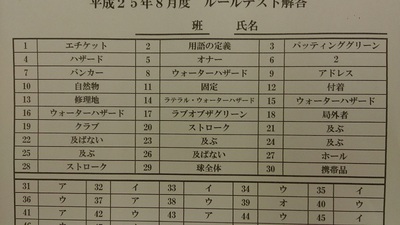 平成25年8月度 ルールテスト解答
班 氏名
1 エチケット 2 用語の定義 3 パッティンググリーン
4 ハザード 5 オナー 6 2
7 バンカー 8 ウォーターハザード 9 アドレス
10 自然物 11 固定 12 付着
13 修理地 14 ラテラル・ウォーターハザード 15 ウォーターハザード
16 ウォーターハザード 17 ラブオブザグリーン 18 局外者
19 クラブ 20 ストローク 21 及ぶ
22 及ばない 23 及ぶ 24 及ぶ
25 及ぶ 26 及ばない 27 ホール
28 ストローク 29 球全体 30 携帯品
31 ア 32 イ 33 イ 34 ウ 35 イ
36 ウ 37 ア 38 ウ 39 オ 40 ウ
41 ア 42 ウ 43 ア 44 ウ 45 イ